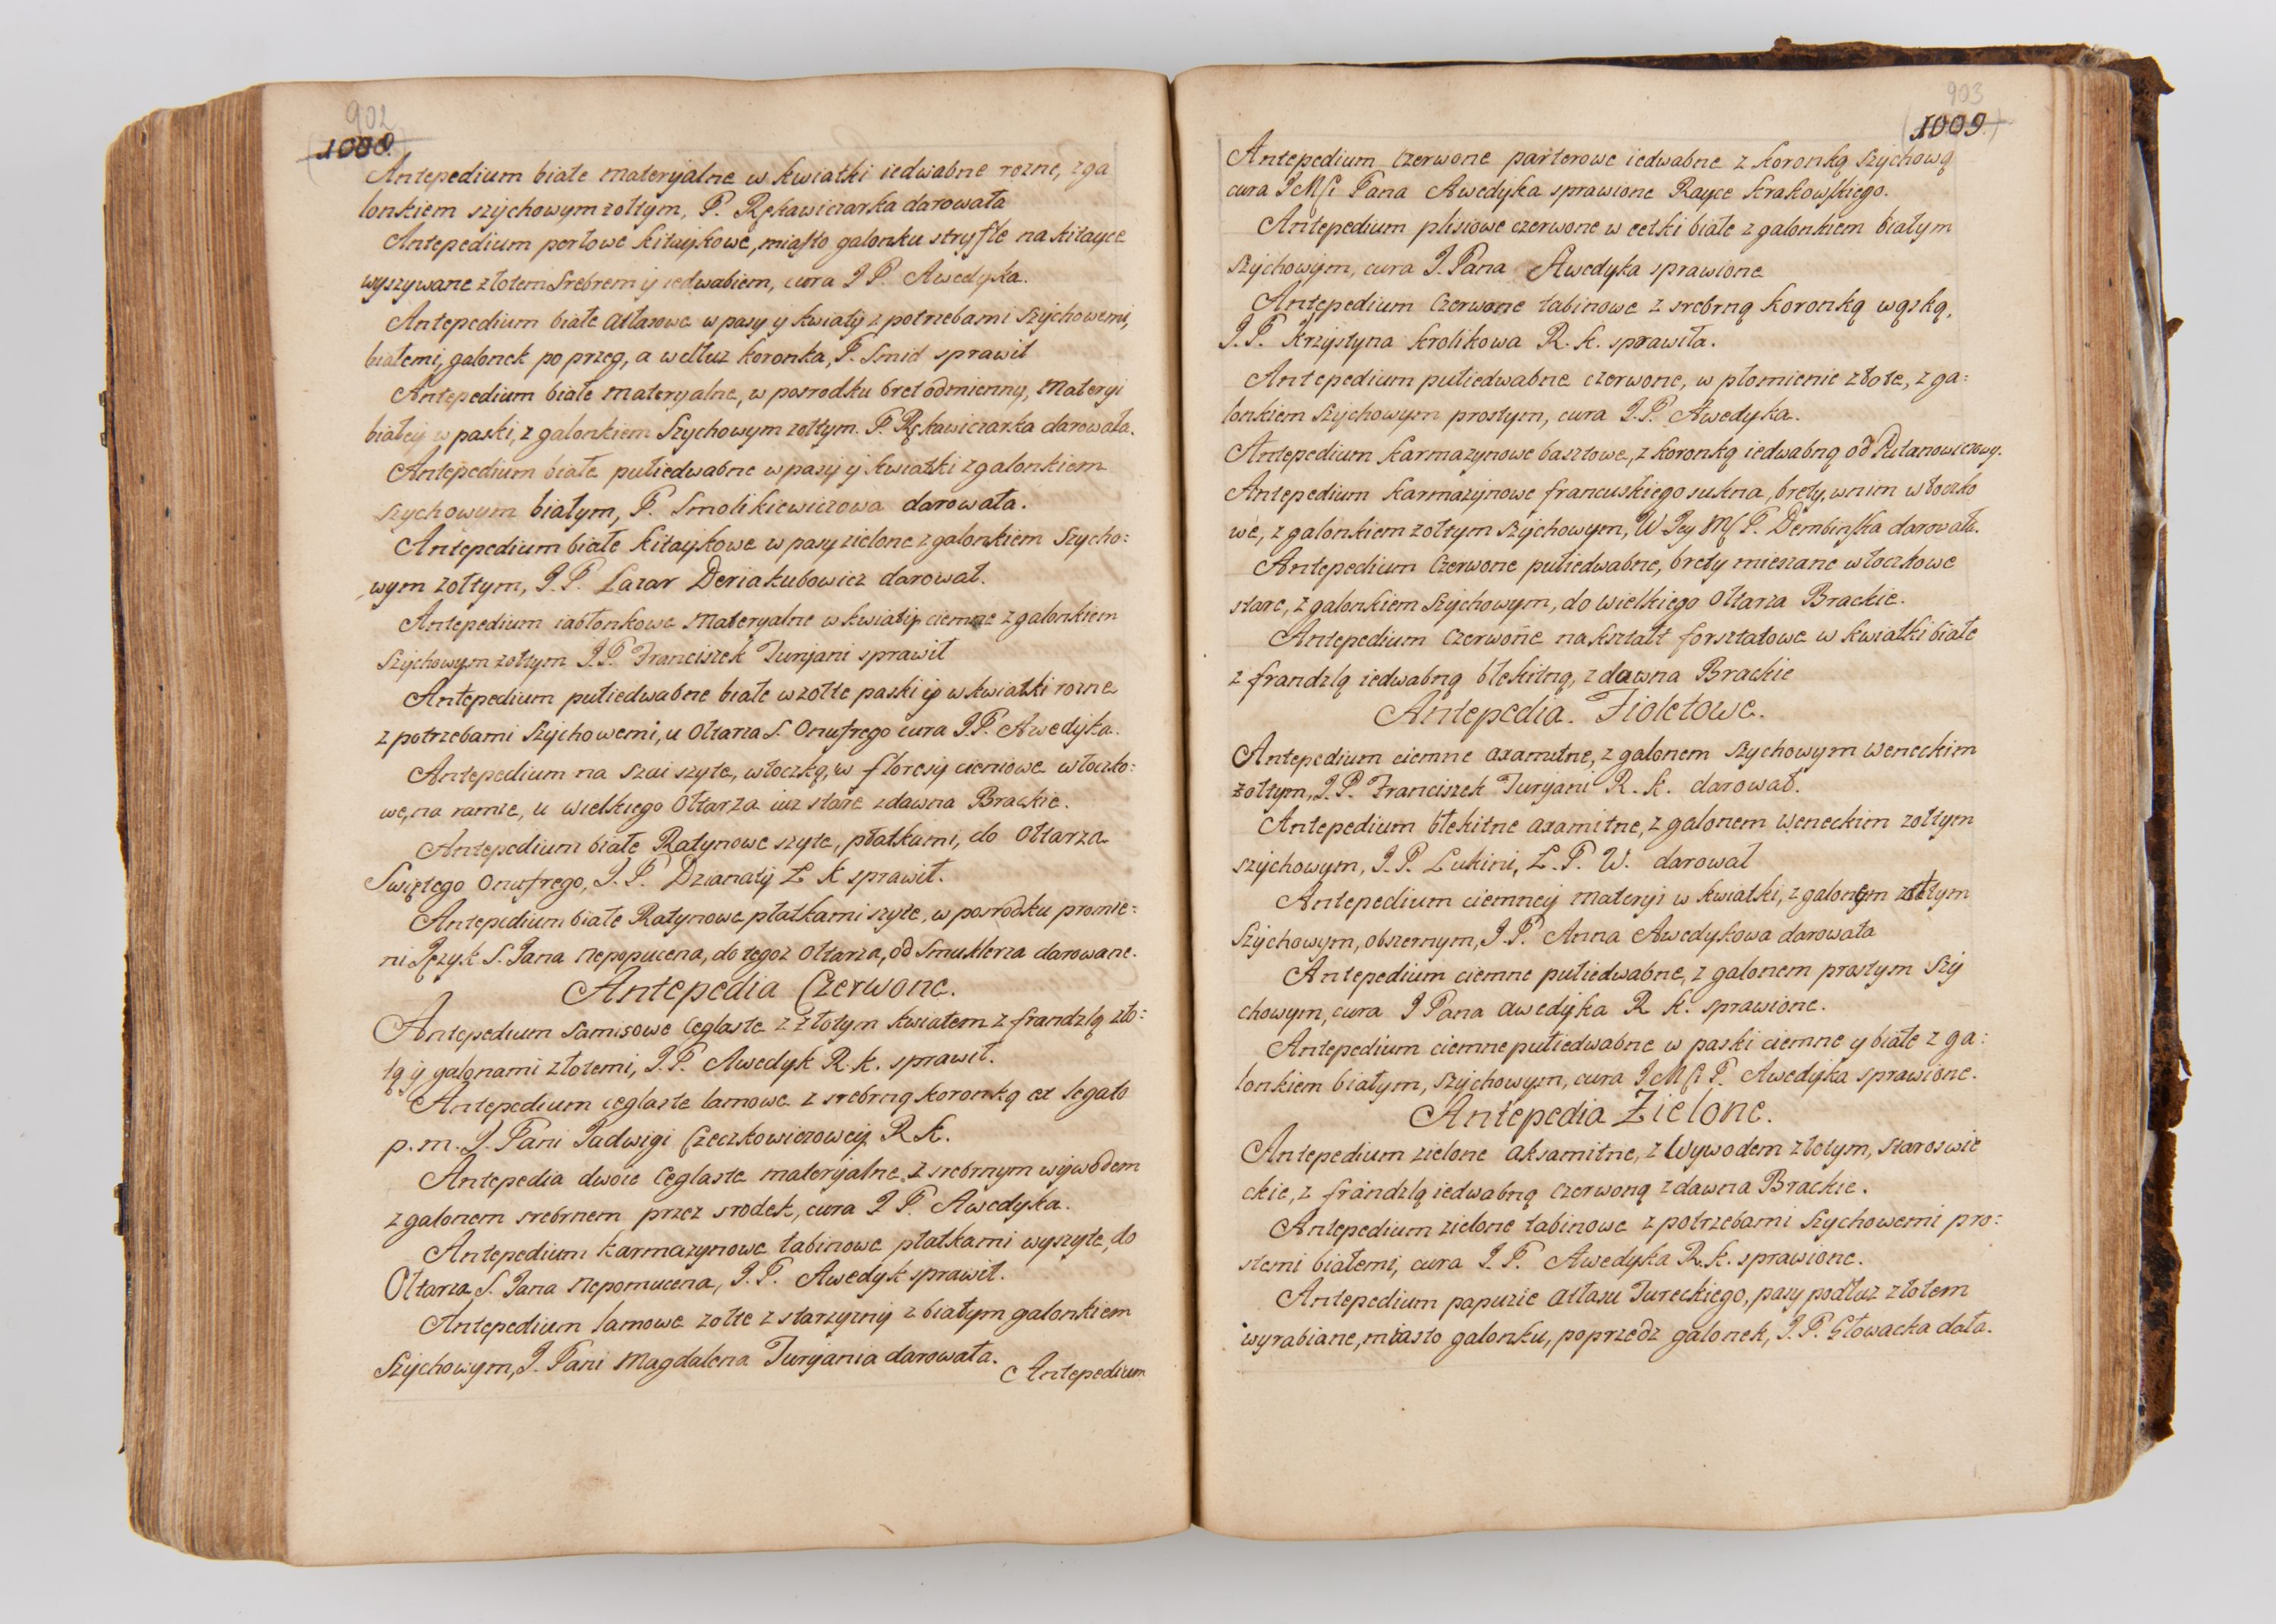 902
1008
Antepedium białe materyalne w kwiatki iedwabne rozne, z ga
lonkiem szychowym zołtym, P. Rękawiczarka darowała
Antepedium perłowe kitaykowe, miasto galonku stryfle na kitayce
wyszywane złotem srebrem y iedwabiem, cura J P. Awedyka.
Antepedium białe atłasowe w pasy y kwiaty z potrzebami szychowemi,
białemi, galonek po przeg, a wełłuz koronka, P. Smid sprawił
Antepedium białe materyalne, w posrodku bret odmienny, materyi
białey w paski, z galonkiem szychowym zołtym. P. Rękawiczarka darowała.
Antepedium białe pułiedwabne w pasy y kwiatki z galonkiem
szychowym białym, P. Smolikiewiczowa darowała.
Antepedium białe kitaykowe w pasy zielone z galonkiem szycho:
wym zołtym, J. P. Lazar Deriakubowicz darował.
Antepedium iabłonkowe materyalne w kwiaty ciemne z galonkiem
szychowym zołtym J. P. Franciszek Turyani sprawił
Antepedium pułiedwabne białe w zołte paski y w kwiatki rozne
z potrzebami szychowemi, u Ołtarza S. Onufrego cura J. P. Awedyka.
Antepedium na szai szyte, włoczką, w floresy cieniowe włoczko:
we, na ramie, u wielkiego Ołtarza iuz stare zdawna Brackie.
Antepedium białe Ratynowe szyte, płatkami, do Ołtarza
Swiętego Onufrego, J. P. Dzianoty Ł K sprawił.
Antepedium białe Ratynowe płatkami szyte, w posrodku promie:
ni Język S. Jana Nepopucena, do tegoz Ołtarza, od Smuklerza darowane.
Antepedia Czerwone.
Antepedium Samisowe Ceglaste z złotym kwiatem z frandzlą zło:
tą y galonami złotemi, J. P. Awedyk R. k. sprawił.
Antepedium ceglaste lamowe z srebrną koronką ex legato
p. m. J. Pani Jadwigi Czeczkowiczowey R k.
Antepedia dwoie Ceglaste materyalne z srebrnym wywodem
z galonem srebrnem przez srodek, cura J P. Awedyka.
Antepedium karmazynowe tabinowe płatkami wyszyte, do
Ołtarza S. Jana Nepomucena, J. P. Awedyk sprawił.
Antepedium lamowe zołte z starzyzny z białym galonkiem
Szychowym, J. Pani Magdalena Turyania darowała.
Antepedium
903
1009
Antepedium Czerwone parterowe iedwabne z koronką szychową
cura J M Ci Pana Awedyka sprawione Rayce krakowskiego.
Antepedium plisiowe czerwone w cetki białe z galonkiem białym
szychowym, cura J. Pana Awedyka sprawione
Antepedium Czerwone tabinowe z srebrną koronką wąską,
J. P. Krzystyna Krolikowa R. k. sprawiła.
Antepedium pułiedwabne czerwone, w płomienie złote, z ga:
lonkiem szychowym prostym, cura J. P. Awedyka.
Antepedium karmazynowe basztowe, z koronką iedwabną od Putanowiczowy.
Antepedium karmazynowe francuskiego sukna, brety, w nim włoczko
we, z galonkiem zołtym szychowym, W Jey MC P. Dembinska darowała.
Antepedium Czerwone pułiedwabne, brety mieszane włoczkowe
stare, z galonkiem szychowym, do wielkiego Ołtarza Brackie.
Antepedium Czerwone na kształt forsztatowe w kwiatki białe
z frandzlą iedwabną błekitną, zdawna Brackie
Antepedia. Fioletowe.
Antepedium ciemne axamitne, z galonem szychowym weneckim
zołtym, J. P. Franciszek Turyani R. k. darował.
Antepedium błekitne axamitne, z galonem weneckim zołtym
szychowym, J. P. Lukini, Ł. P. W. darował
Antepedium ciemney materyi w kwiatki, z galonem zołtym
szychowym, obszernym, J. P. Anna Awedykowa darowała
Antepedium ciemne pułiedwabne, z galonem prostym Szy
chowym, cura J Pana Awedyka R k. sprawione.
Antepedium ciemne pułiedwabne w paski ciemne y białe z ga:
lonkiem białym, szychowym, cura J M Ci P. Awedyka sprawione.
Antepedia Zielone.
Antepedium zielone aksamitne, z Wywodem złotym, staroswie
ckie, z frandzlą iedwabną czerwoną zdawna Brackie.
Antepedium zielone tabinowe z potrzebami szychowemi pro:
stemi białemi, cura J. P. Awedyka R. k. sprawione.
Antepedium papuzie atłasu Tureckiego, pasy podłuz złotem
wyrabiane, miasto galonku, poprzedz galonek, J. P. Głowacka dała.